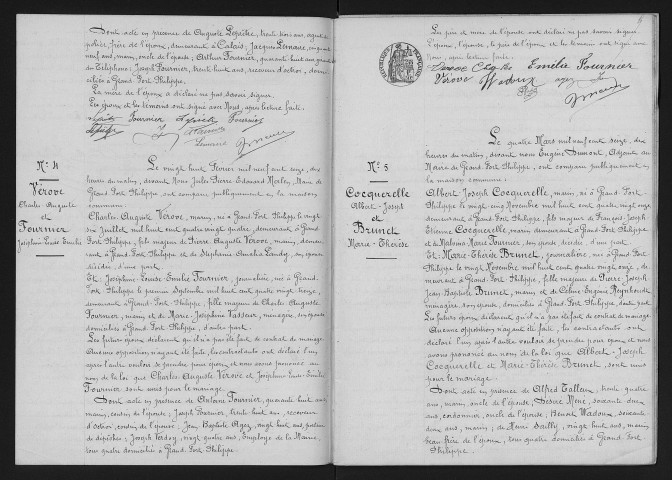 Dont acte en présence de Auguste Lepaître, trente trois ans, agent de
police, frère de l'époux, demeurant à Calais, Jacques Lemaire, cinquante
neuf ans, marin, oncle de l'époux; Arthur Fournier, quarante huit ans,
du Téléphone; Joseph Fournier, trente huit ans, receveur d'octroi, domi-
ciliés à Grand-Fort-Philippe.
La mère de l'époux a déclaré ne pas savoir signer.
Les époux et les témoins ont signé avec Nous, après lecture faite.
Fournier Fournier
Lemaire
N° 4
Vérove
Charles-Auguste
et
Fournier
Joséphine-Louise-Emilie
Le vingt huit Février mil neuf cent seize, dix
heures du matin, devant nous Jules Pierre Edouard Merlen, Maire de
Grand-Fort-Philippe, ont comparu publiquement en la maison
commune:
Charles-Auguste Vérove, marin, né à Grand-Fort-Philippe le vingt
six Juillet mil huit cent quatre vingt quatre, demeurant à Grand-
Fort-Philippe, fils majeur de Pierre Auguste Vérove, marin, demeu-
rant à Grand-Fort-Philippe et de Stéphanie Amélie Leprêtre, son épouse
décédée, d'une part.
Et Joséphine-Louise-Emilie Fournier, journalière, née à Grand-
Fort-Philippe le premier Septembre mil huit cent quatre vingt treize,
demeurant à Grand-Fort-Philippe, fille majeure de Charles Auguste
Fournier, marin et de Marie-Joséphine Vasseur, ménagère, son épouse,
domiciliés à Grand-Fort-Philippe, d'autre part.
Les futurs époux déclarent qu'il n'a pas été fait de contrat de mariage.
Aucune opposition n'ayant été faite, les contractants ont déclaré l'un
après l'autre vouloir se prendre pour époux et nous avons prononcé au
nom de la loi que Charles-Auguste Vérove et Joséphine-Louise-Emilie
Fournier sont unis par le mariage.
Dont acte en présence de Antoine Fournier, quarante huit ans,
marin, cousin de l'épouse; Joseph Fournier, trente huit ans, receveur
d'octroi, cousin de l'épouse; Jean Baptiste Agez, vingt huit ans, porteur
de dépêches; Joseph Verdoy, vingt quatre ans, employé de la Mairie,
tous quatre domiciliés à Grand-Fort-Philippe.
Les père et mère de l'épouse ont déclaré ne pas savoir signer.
L'époux, l'épouse, le père de l'époux et les témoins ont signé avec
Nous, après lecture faite.
Emilie Fournier
Vérove Wadoux agez
N° 5
Cocquerelle
Albert-Joseph
et
Brunet
Marie-Thérèse
Le quatre Mars mil neuf cent seize, dix
heures du matin, devant nous Eugène Dumont, Adjoint au
Maire de Grand-Fort-Philippe, ont comparu publiquement en
la maison commune:
Albert-Joseph Cocquerelle, marin, né à Grand-Fort-
Philippe le vingt cinq Novembre mil huit cent quatre vingt onze,
demeurant à Grand-Fort-Philippe, fils majeur de François-Joseph-
Etienne Cocquerelle, marin, demeurant à Grand-Fort-Philippe
et de Marie Fournier, son épouse décédée, d'une part.
Et Marie-Thérèse Brunet, journalière, née à Grand-Fort-
Philippe le vingt Novembre mil huit cent quatre vingt onze, de-
meurant à Grand-Fort-Philippe, fille majeure de Pierre-Joseph
Jean-Baptiste Brunet, marin, et de Céline Eugénie Reynhoudt,
ménagère, son épouse, domiciliés à Grand-Fort-Philippe, d'autre part.
Les futurs époux déclarent qu'il n'a pas été fait de contrat de mariage.
Aucune opposition n'ayant été faite, les contractants ont
déclaré l'un après l'autre vouloir se prendre pour époux et nous
avons prononcé au nom de la loi que Albert-Joseph
Cocquerelle et Marie-Thérèse Brunet, sont unis
par le mariage.
Dont acte en présence de Alfred Talleux, trente quatre
ans, marin, oncle de l'épouse; Désiré Mène, soixante deux
ans, cordonnier, oncle de l'époux; Benoît Wadoux, soixante
deux ans, marin; de Henri Sailly, vingt huit ans, marin,
beau-frère de l'époux, tous quatre domiciliés à Grand-Fort-
Philippe.